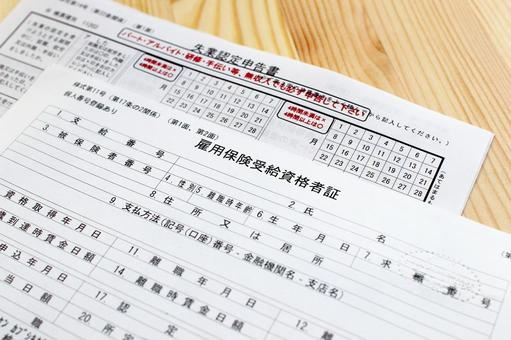 失業認定申告書
パート・アルバイト・研修・手伝い等、無収入でも必ず申告して下さい
から記入してください。)
4時間未満は×
4時間以上は○
4時間未満は×
4時間以上は○
月
1 2 3 4 5 6 7
8 9 10 11 12 13 14
15 16 17 18 19 20 21
22 23 24 25 26 27 28
月
1 2 3 4 5 6 7
8 9 10 11 12 13 14
15 16 17 18 19 20 21
22 23 24 25 26 27 28
様式第11号(第17条の2関係)(第1面、第2面)
個人番号登録あり
雇用保険受給資格者証
1 支給番号
2 氏名
3 被保険者番号
4 性別
5 離職時年齢
6 生年月日
7 求職番号
8 住所又は居所
9 支払方法(記号(口座)番号・金融機関名・支店名)
資格取得年月日
11 離職年月日
12 離
歳到達時賃金日額
14 離職時賃金日額
申込年月日
17 認定
当日額
20 所定